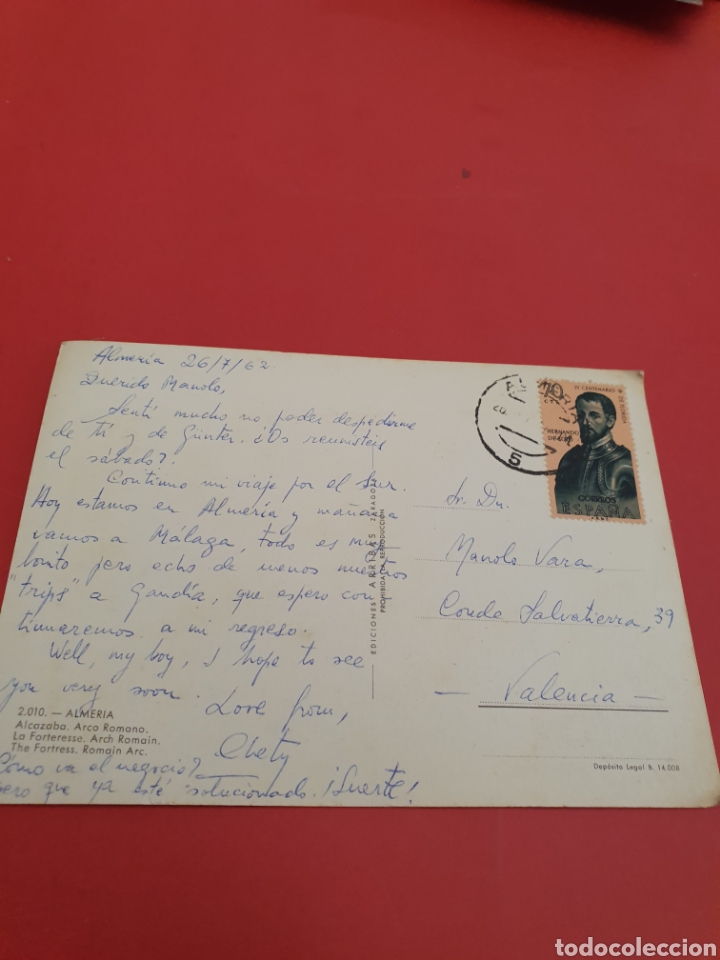 Almería 26/7/62
Querido Manolo,
Sentí mucho no poder despedirme
de tí y de Günter. ¿Os reunisteis
el sábado?
Continuo mi viaje por el Sur.
Hoy estamos en Almería y mañana
vamos a Málaga, todo es muy
bonito pero echo de menos nuestros
"trips" a Gandía, que espero con
tinuaremos a mi regreso.
Well, my boy, I hope to see
you very soon.
Love from,
Chety
¿Cómo va el negocio?
ero que ya esté solucionado. ¡Suerte!
2.010. — ALMERIA
Alcazaba. Arco Romano.
La Forteresse. Arch Romain.
The Fortress. Romain Arc.
EDICIONES ARRIBAS ZARAGOZA
PROHIBIDA LA REPRODUCCION
HERNANDO
CORREOS
ESPAÑA
5
Sr. Dn.
Manolo Vara,
Conde Salvatierra, 39
— Valencia —
Depósito Legal B. 14.008
todocoleccion